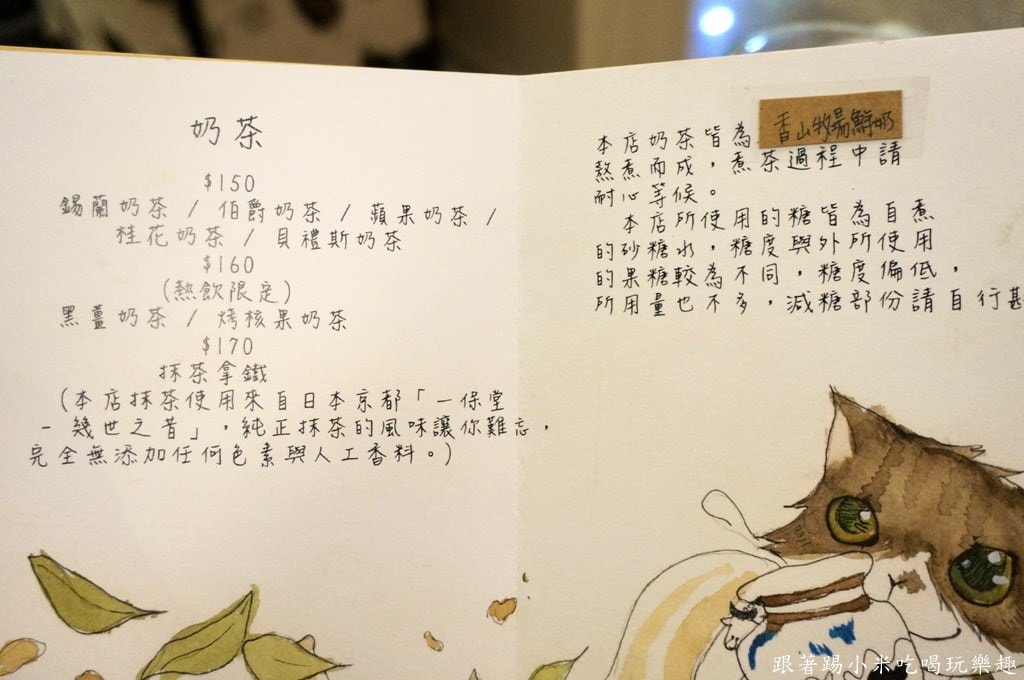 奶茶
$150
錫蘭奶茶 / 伯爵奶茶 / 蘋果奶茶 /
桂花奶茶 / 貝禮斯奶茶
$160
(熱飲限定)
黑薑奶茶 / 烤核果奶茶
$170
抹茶拿鐵
(本店抹茶使用來自日本京都「一保堂
- 幾世之昔」，純正抹茶的風味讓你難忘，
完全無添加任何色素與人工香料。)
本店奶茶皆為 香山牧場鮮奶
熬煮而成，煮茶過程中請
耐心等候。
本店所使用的糖皆為自煮
的砂糖水，糖度與外所使用
的果糖較為不同，糖度偏低，
所用量也不多，減糖部份請自行
跟著踢小米吃喝玩樂趣